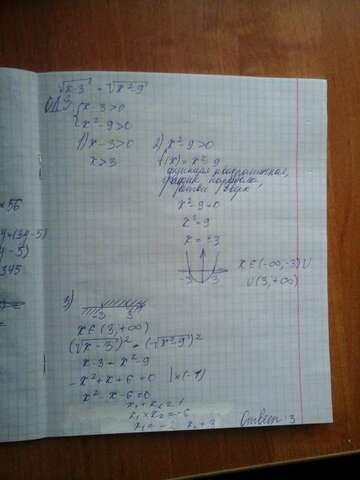 √x-3 = √x²-9
ОДЗ {x-3>0
x²-9>0
1) x-3>0
x>3
2) x²-9>0
f(x)=x²-9
функция квадратичная,
график парабола,
ветви вверх
x²-9=0
x²=9
x=±3
-3 3
x∈(-∞,-3)∪
∪(3,+∞)
3)
-3 3
x∈(3,+∞)
(√x-3)²=(√x²-9)²
x-3=x²-9
-x²+x+6=0 |×(-1)
x²-x-6=0
x₁+x₂=1
x₁×x₂=-6
x₁=-2 x₂=3
Ответ: 3
×56
4-5)
345